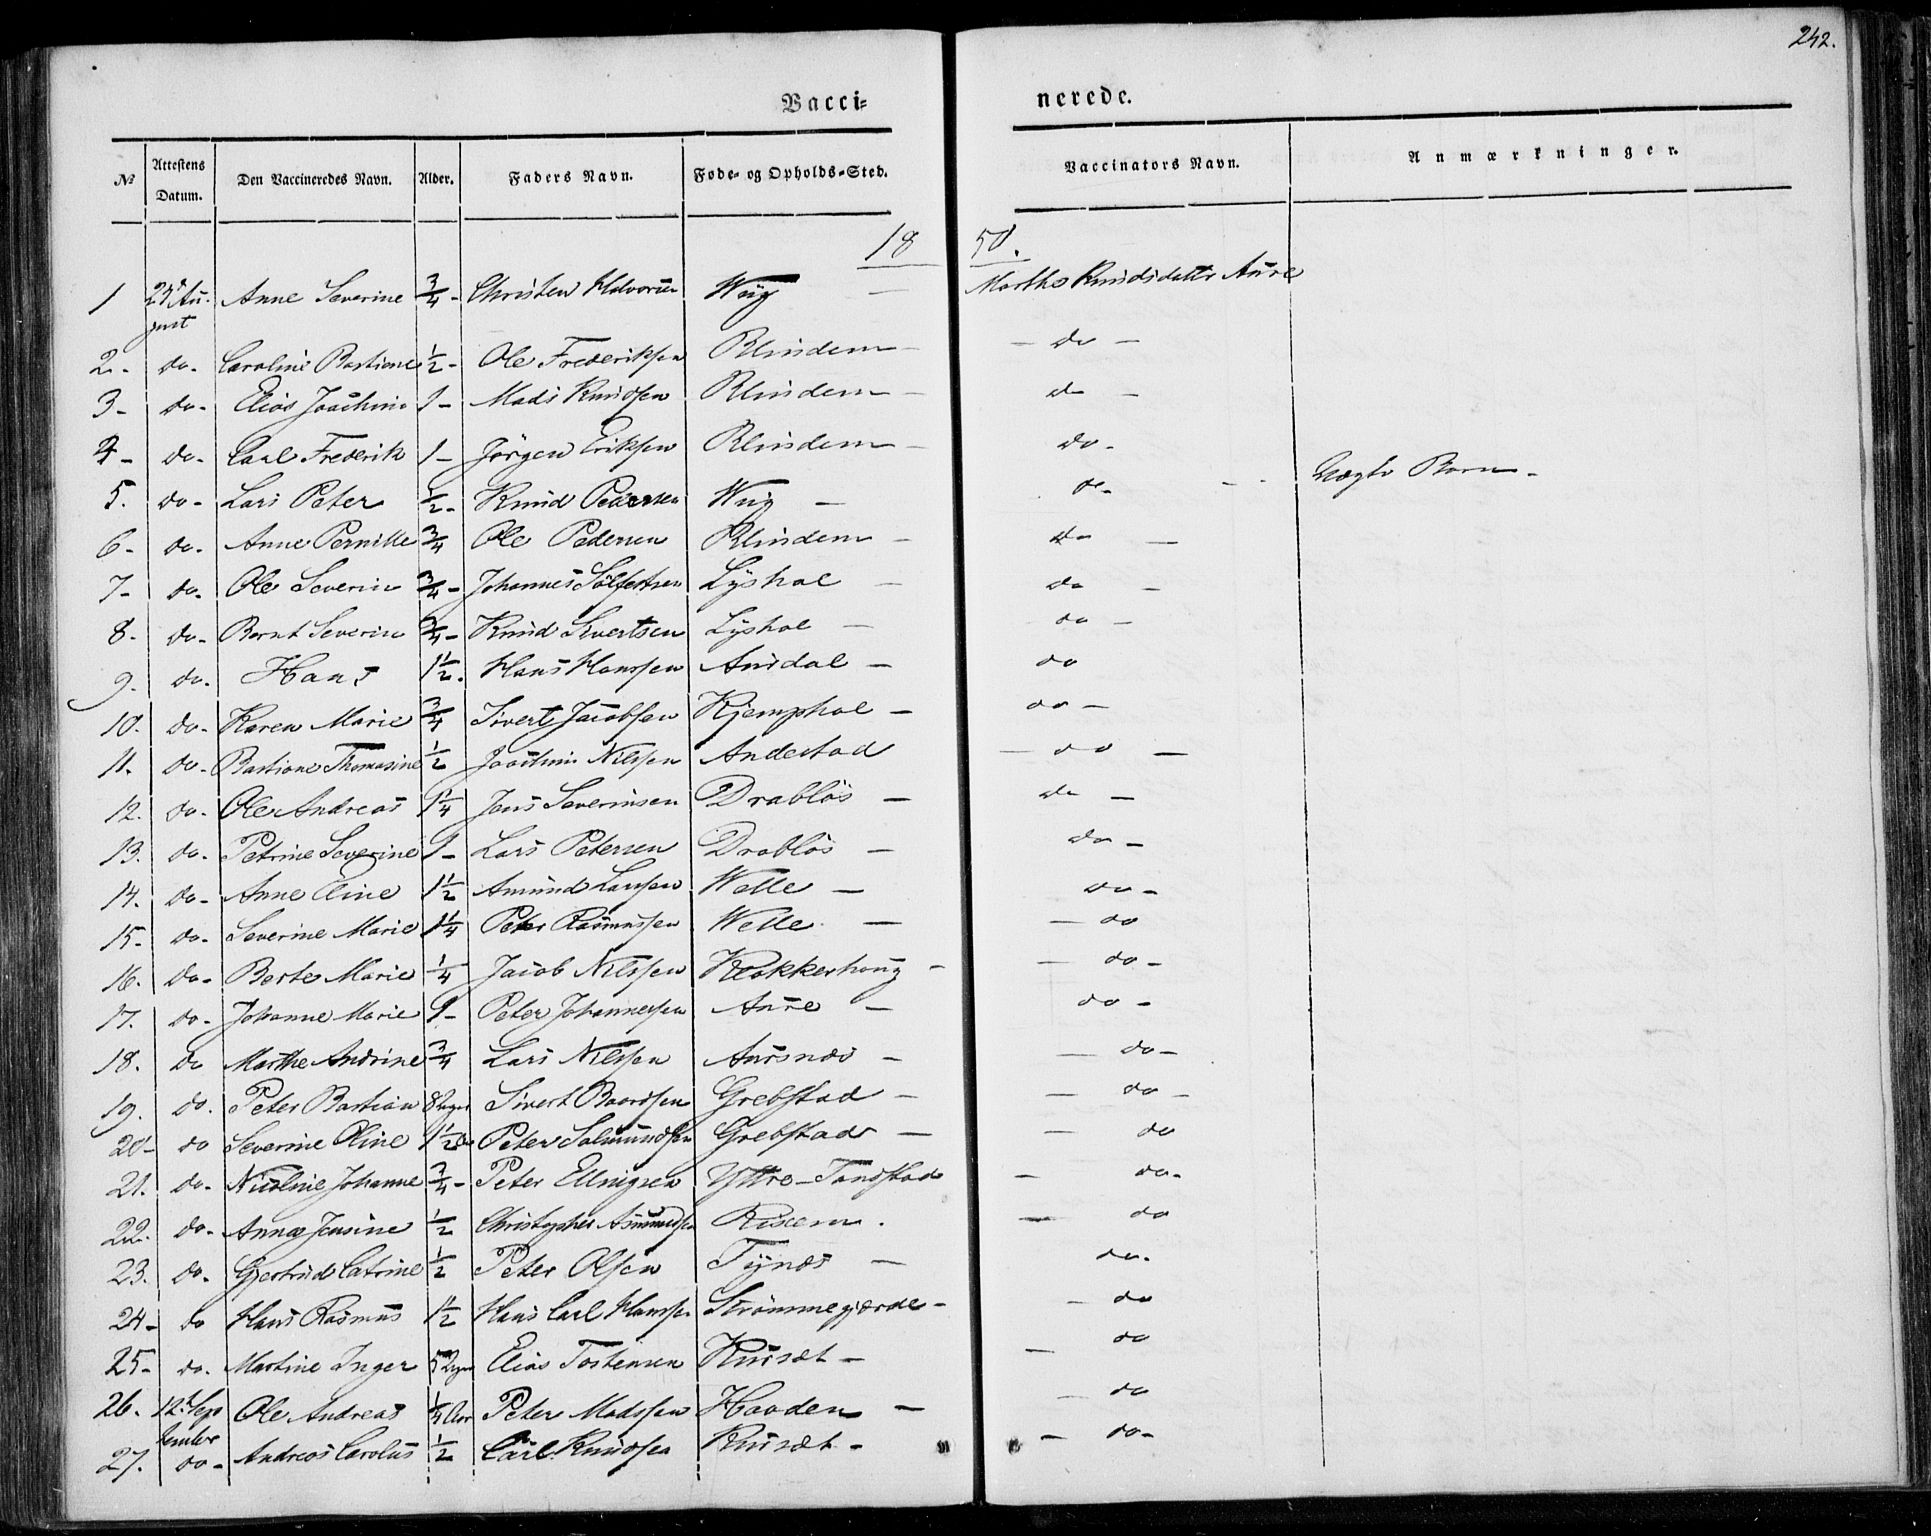 242.
Vacci= nerede.
№ Attestens Datum. Den Vaccineredes Navn. Alder. Faders Navn. Føde- og Opholds-Sted. Vaccinators Navn. Anmærkninger.
18 50.
1 23de August Anne Severine 3/4 - Christen Halvorsen Wiig — Marthe Knudsdatter Aure
2. do. Caroline Bastiane 1/2 - Ole Frederiksen Blindem — — do —
3 - do - Elias Joachim 1 - Mads Knudsen Blindem — do —
4 - do - Carl Frederik 1 - Jörgen Eriksen Blindem — do -
5. do - Lars Peter 1/2 - Knud Pedersen Wiig — do - - - Uægte Barn -
6 - do. Anne Pernille 3/4 Ole Pedersen Blindem — do —
7 - do. Ole Severin 3/4 - Johannes Sölfestsen Lyshol — do —
8. do - Bernt Severin 3/4 - Knud Sivertsen Lyshol — do —
9. do. Hans 1 1/2. Hans Hanssen Aurdal — do
10. do - Karen Marie 3/4 Sivert Jacobsen Kjemphol — do —
11. do - Bastiane Thomasine 1/2 Joachim Nilssen Andestad — do —
12. do - Ole Andreas 1 1/4 Jens Severinsen Drabløs — do —
13. do - Petrine Severine 1 - Lars Petersen Drabløs — do —
14. do - Anne Eline 1 1/2 Amund Larssen Welle — do -
15 - do. Severine Marie 1 1/4 Peter Rasmussen Welle. — — do
16. do - Berte Marie 1/4 Jacob Nilssen Klokkerhoug - — do -
17. do - Johanne Marie 1 - Peter Johannessen Aure — do -
18. do Marthe Andrine 3/4 Lars Nilssen Aursnæs — — do -
19. do. Peter Bastian 8 Uger Sivert Baardsen Grebstad — — do -
20 - do Severine Oline 1 1/2 Aar Peter Salmundsen Grebstad — — do
21. do - Nicoline Johanne 3/4 - Peter Ellingsen Yttre-Tandstad — do -
22. do - Anne Jensine 1/2 Christopher Asmundsen Risem. — do
23. do. Gjertrud Catrine 1/2 Peter Olsen Tynes — do.
24 - do Hans Rasmus 1 1/2 Hans Carl Hanssen Strömmegjærde - — do
25 - do. Martine Inger 5 Uger Elias Tostensen Knusæt — — do
26. 12te September Ole Andreas 1/4 Aar Peter Madssen Haaden — — do
27. do - Andreas Carolus 1/2 Carl Knudsen Knusæt - — do -